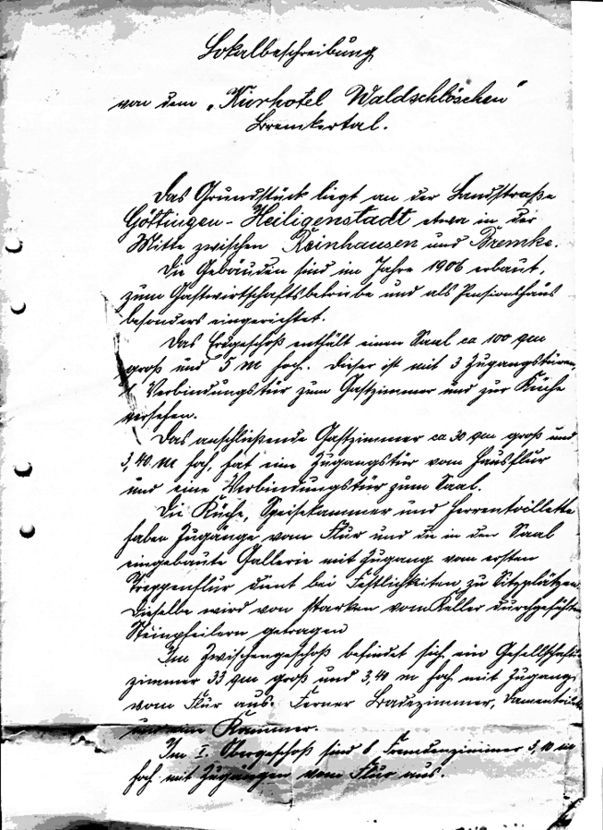 Lokalbeschreibung
von dem „Kurhotel Waldschlöschen"
Bremkertal.
Das Grundstück liegt an der Landstraße
Göttingen-Heiligenstadt etwa in der
Mitte zwischen Reinhausen und Bremke.
Die Gebäuden sind im Jahre 1906 erbaut,
zum Gastwirtschaftsbetriebe und als Pensionshaus
besonders eingerichtet.
Das Erdgeschoß enthält einen Saal ca 100 qm
groß und 5 m hoch. Dieser ist mit 3 Zugangstüren,
1 Verbindungstür zum Gastzimmer und zur Küche
versehen.
Das anschließende Gastzimmer ca 30 qm groß und
3,40 m hoch, hat eine Zugangstür vom Hausflur
und eine Verbindungstür zum Saal.
Die Küche, Speisekammer und Herrentoillette
haben Zugänge vom Flur und die in den Saal
eingebaute Gallerie mit Zugang vom ersten
Treppenflur dient bei Festlichkeiten zu Sitzplätzen.
Dieselbe wird von starken vom Keller durchgeführten
Steinpfeilern getragen
Im Zwischengeschoß befindet sich ein Gesellschafts
zimmer 33 qm groß und 3,40 m hoch mit Zugang
vom Flur aus. Ferner Badezimmer,
und eine Kammer.
Im I. Obergeschoß sind 8 Fremdenzimmer 3,10 m
hoch mit Zugängen vom Flur aus.